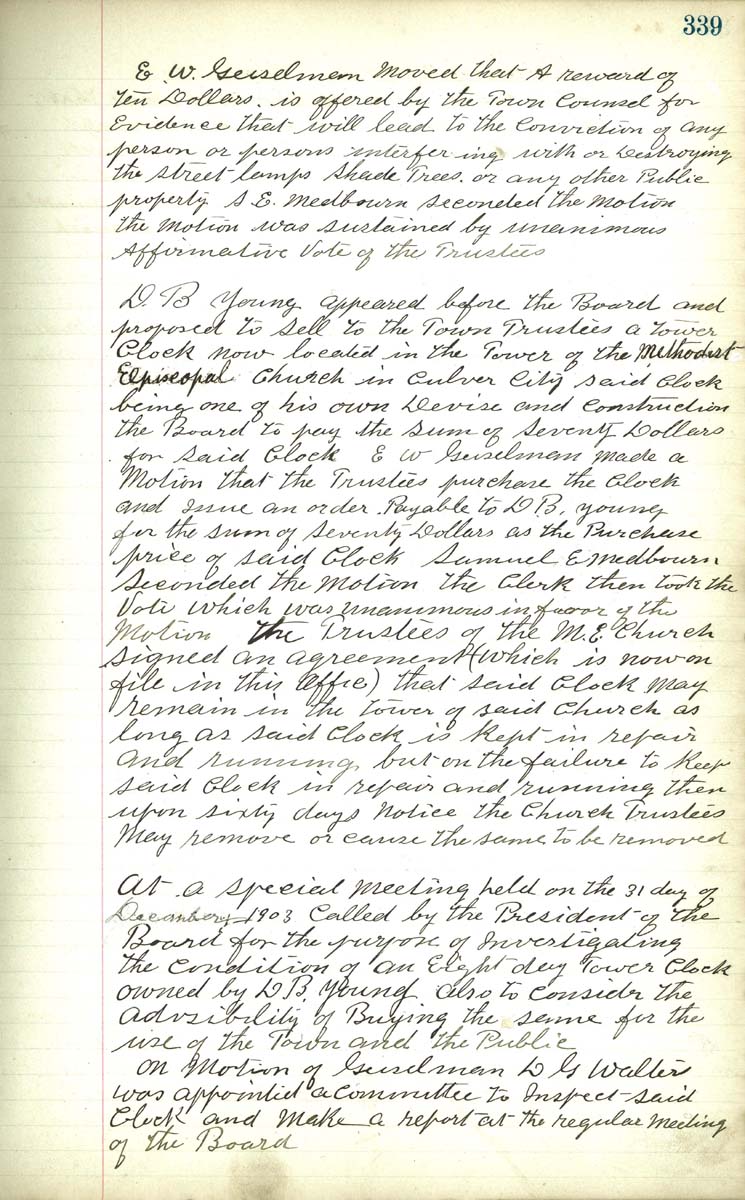 339
E. W. Geiselman Moved that A reward of
ten Dollars. is offered by the Town Counsel for
Evidence that will lead to the Conviction of any
person or persons interfer ing with or Destroying
the street lamps Shade Trees. or any other Public
property S E. Medbourn seconded the Motion
the Motion was sustained by unanimous
Affirmative Vote of the Trustees
D. B Young appeared before the Board and
proposed to sell to the Town Trustees a tower
Clock now located in the Tower of the Methodist
Episcopal Church in Culver City said Clock
being one of his own Devise and Construction
the Board to pay the sum of Seventy Dollars
for said Clock E W Geiselman made a
Motion that the Trustees purchase the Clock
and Issue an order Payable to D B. Young
for the sum of Seventy Dollars as the Purchase
price of said Clock Samuel E Medbourn
Seconded the Motion the Clerk then took the
Vote which was unanimous in favor of the
Motion the Trustees of the M. E. Church
signed an agreement (which is now on
file in this Office) that said Clock May
remain in the tower of said Church as
long as said Clock is kept in repair
and running, but on the failure to keep
said Clock in repair and running then
upon sixty days Notice the Church Trustees
May remove or cause the same to be removed
At a special Meeting held on the 31 day of
December 1903 Called by the President of the
Board for the purpose of Investigating
the condition of an Eight day Tower Clock
owned by D B. Young also to consider the
advsibility of Buying the same for the
use of the Town and the Public
On Motion of Geiselman D G Walter
was appointed a Committee to Inspect said
Clock and Make a report at the regular Meeting
of the Board